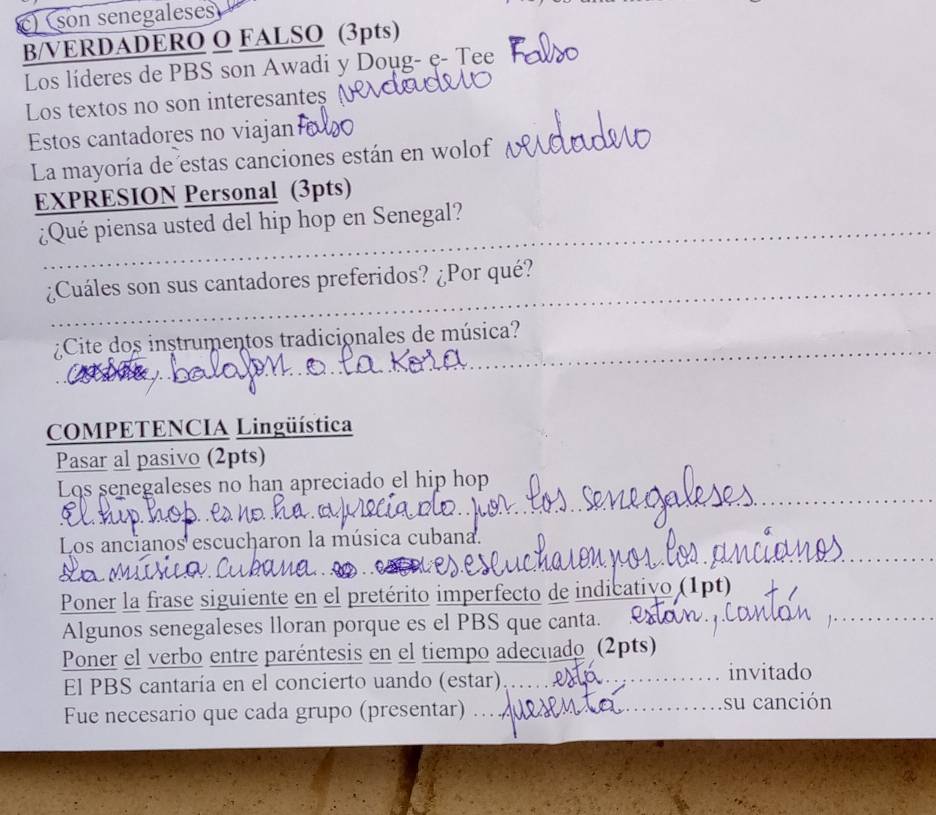 C) (son senegaleses)
B/VERDADERO O FALSO (3pts)
Los líderes de PBS son Awadi y Doug- e- Tee Falso
Los textos no son interesantes verdadero
Estos cantadores no viajan Falso
La mayoría de estas canciones están en wolof verdadero
EXPRESION Personal (3pts)
¿Qué piensa usted del hip hop en Senegal?
¿Cuáles son sus cantadores preferidos? ¿Por qué?
¿Cite dos instrumentos tradicionales de música?
balafon o la Kora
COMPETENCIA Lingüística
Pasar al pasivo (2pts)
Los senegaleses no han apreciado el hip hop
El hip hop es no ha apreciado por los senegaleses
Los ancianos escucharon la música cubana.
La música Cubana es escucharon por los ancianos
Poner la frase siguiente en el pretérito imperfecto de indicativo (1pt)
Algunos senegaleses lloran porque es el PBS que canta. están, cantán,
Poner el verbo entre paréntesis en el tiempo adecuado (2pts)
El PBS cantaría en el concierto uando (estar) está invitado
Fue necesario que cada grupo (presentar) presentá su canción